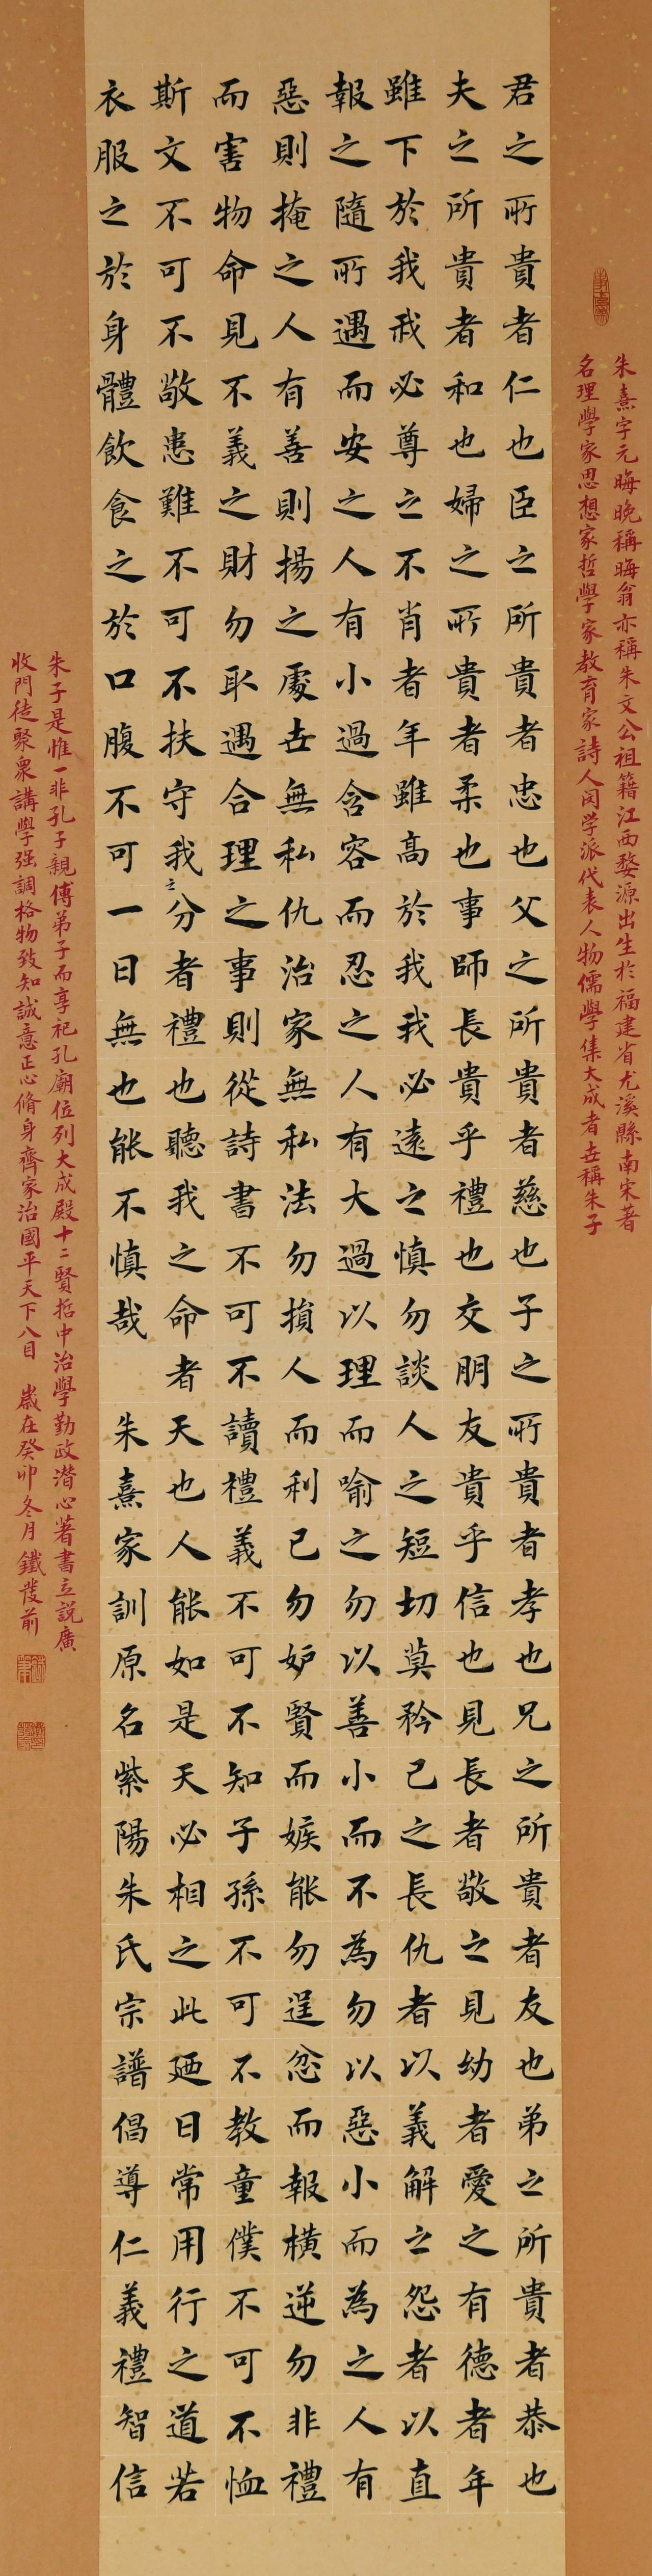 朱熹字元晦晚稱晦翁亦稱朱文公祖籍江西婺源出生於福建省尤溪縣南宋著
名理學家思想家哲學家教育家詩人闵学派代表人物儒學集大成者世稱朱子
君之所貴者仁也臣之所貴者忠也父之所貴者慈也子之所貴者孝也兄之所貴者友也弟之所貴者恭也
夫之所貴者和也婦之所貴者柔也事師長貴乎禮也交朋友貴乎信也見長者敬之見幼者愛之有德者年
雖下於我我必尊之不肖者年雖高於我我必遠之慎勿談人之短切莫矜己之長仇者以義解之怨者以直
報之隨所遇而安之人有小過含容而忍之人有大過以理而喻之勿以善小而不為勿以惡小而為之人有
惡則掩之人有善則揚之處世無私仇治家無私法勿損人而利己勿妒賢而嫉能勿逞忿而報橫逆勿非禮
而害物命見不義之財勿取遇合理之事則從詩書不可不讀禮義不可不知子孫不可不教童僕不可不恤
斯文不可不敬患難不可不扶守我之分者禮也聽我之命者天也人能如是天必相之此廼日常用行之道若
衣服之於身體飲食之於口腹不可一日無也能不慎哉 朱熹家訓原名紫陽朱氏宗譜倡導仁義禮智信
朱子是惟一非孔子親傳弟子而享祀孔廟位列大成殿十二賢哲中治學勤政潜心著書立説廣
收門徒聚衆講學强調格物致知誠意正心脩身齊家治國平天下八目 歲在癸卯冬月鐵發前